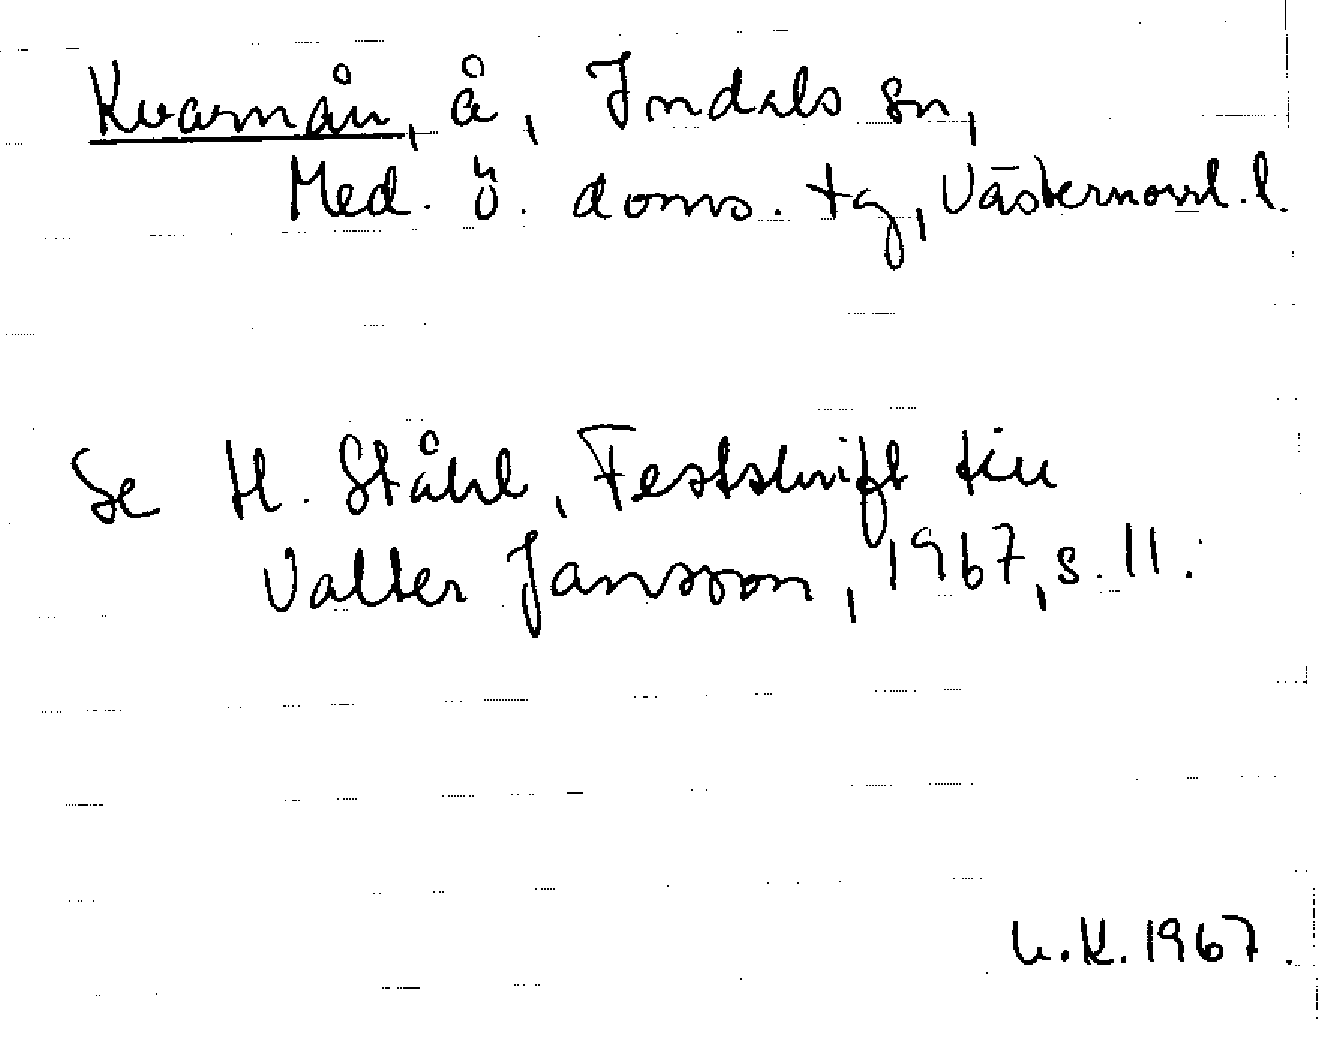 Kvarnån, å, Indals sn,
Med. ö. doms. tg, Västernorrl. l.
Se H. Ståhl, Festskrift till
Valter Jansson, 1967, s. 11.
K. 1967.